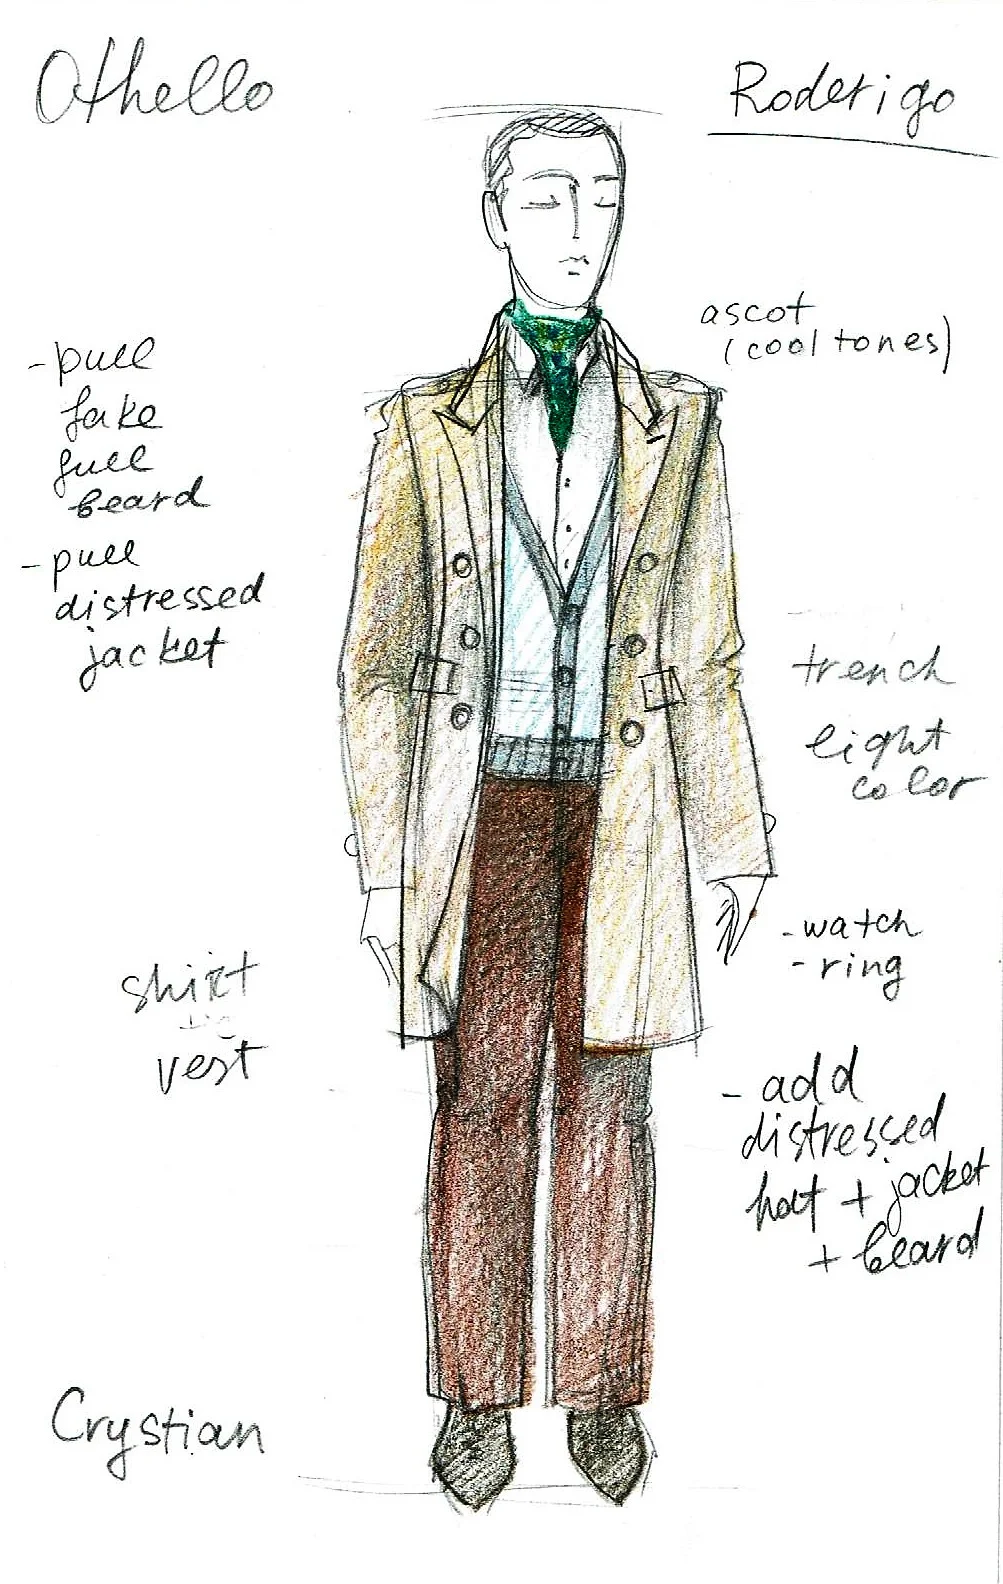 Othello
Roderigo
ascot
(cool tones)
- pull
fake
full
beard
- pull
distressed
jacket
trench
light
color
- watch
- ring
shirt
vest
- add
distressed
hat + jacket
+ beard
Crystian